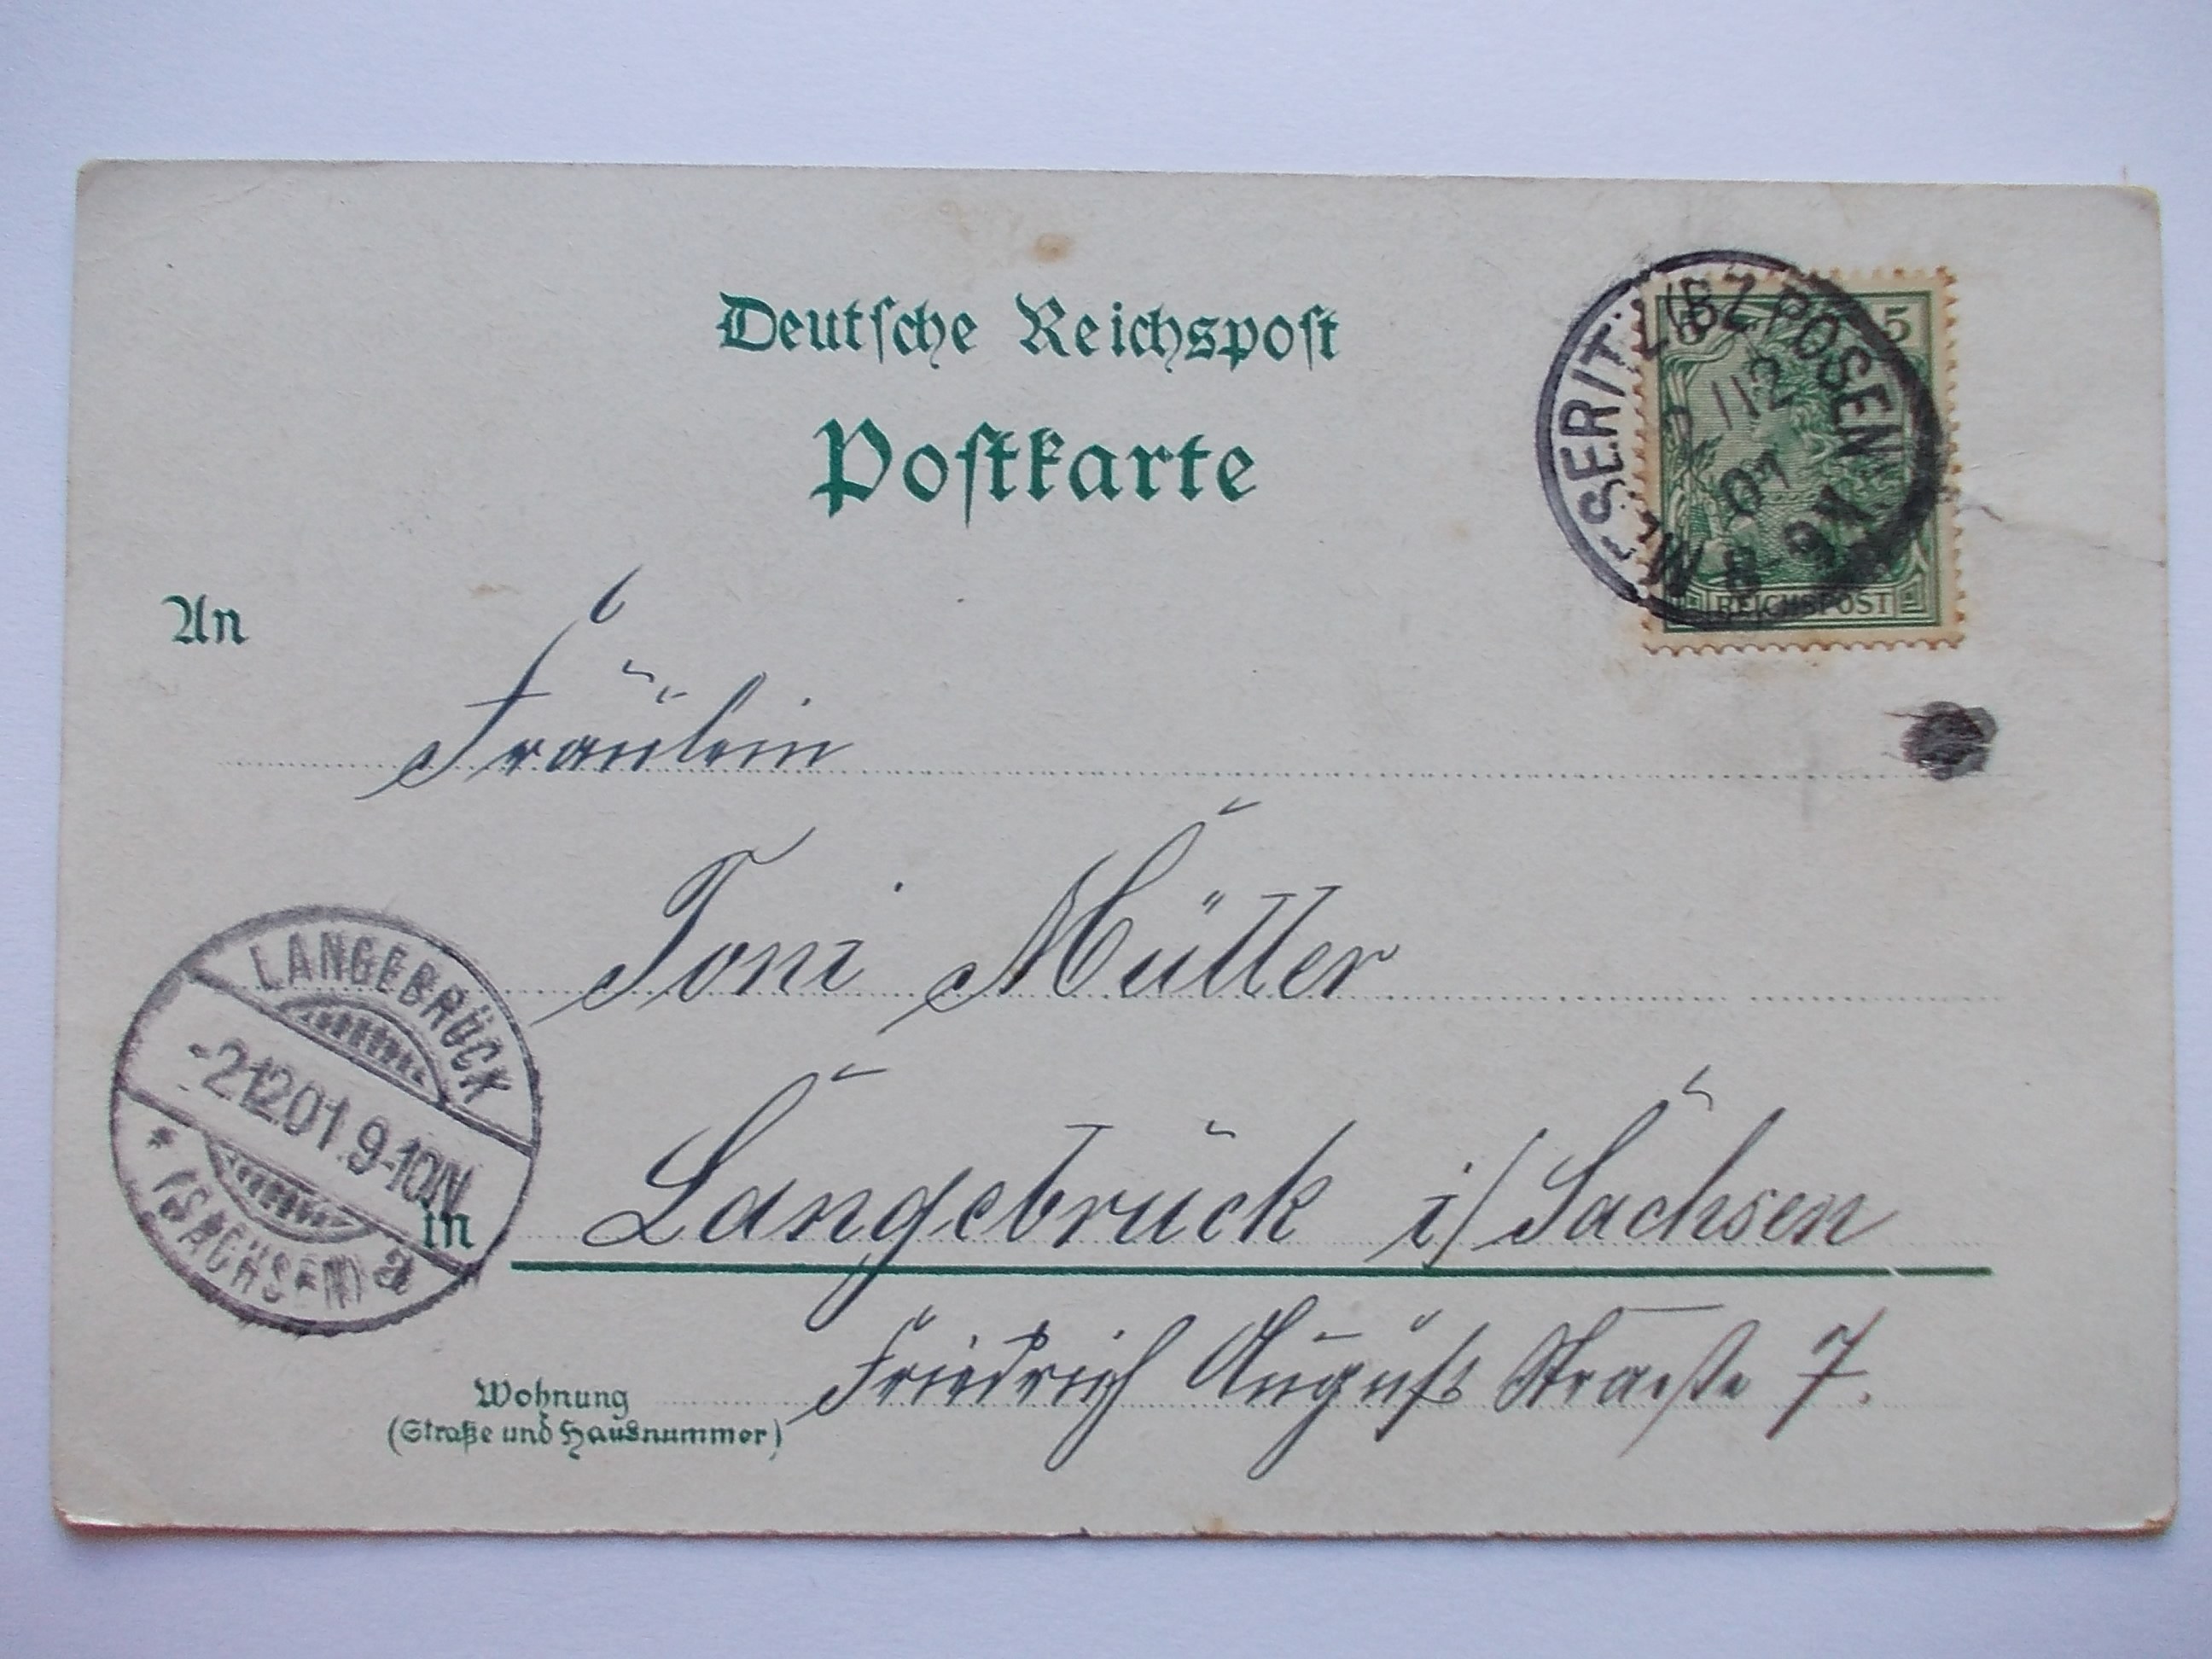 Deutsche Reichspost
Postkarte
5
MESERITZ (BZ POSEN)
1 12
01
8-9N
REICHSPOST
An
Fräulein
Toni Müller
LANGEBRÜCK
-2.12.01.9-10N.
* (SACHSEN) a
in Langebrück i/Sachsen
Wohnung Friedrich August Strasse 7.
(Straße und Hausnummer)